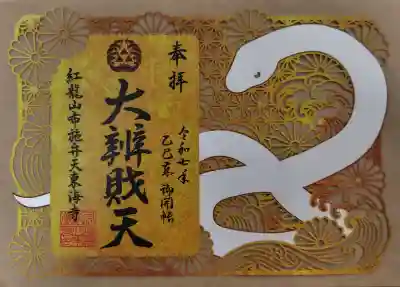 奉拝
令和七年
乙巳年 御開帳
大辨財天
紅龍山布施弁天東海寺